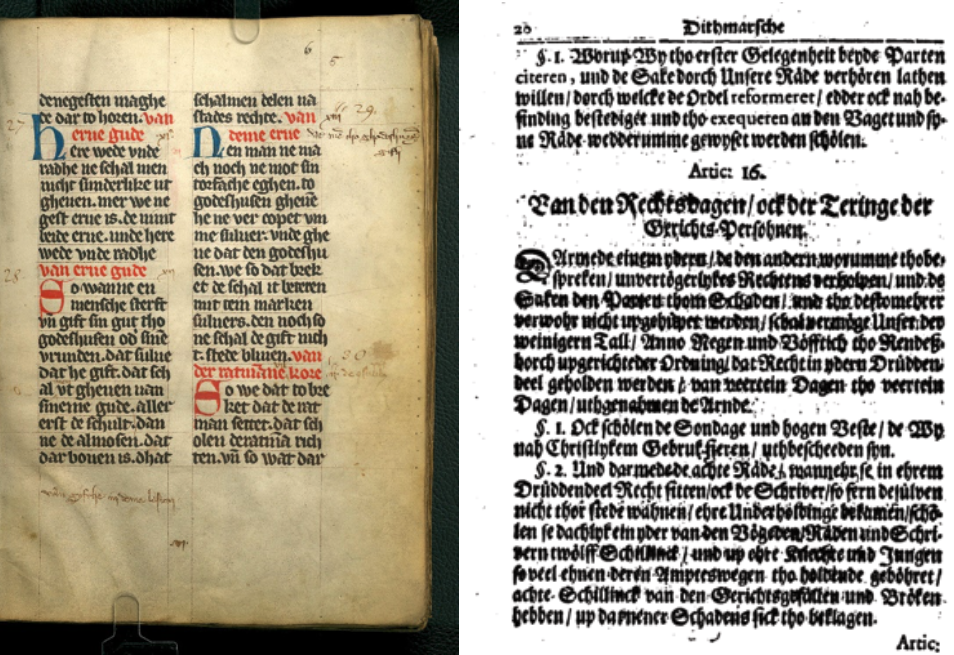 6
5
denegesten maghe
de dar to horen. van
erue gude
Here wede vnde
radhe ne schal men
nicht sunderlike vt
gheuen. mer we ne
gest erue is. de nimt
beide erue. unde here
wede vnde radhe
van erue gude
So wanne en
mensche sterft
vn gift sin gut tho
godeshusen od sine
vrunden. dat sulue
dat he gift. dat sch
al vt gheuen van
sineme gude. aller
erst de schult. dan
ne de almosen. dat
dar bouen is. dhat
27
28
schalmen delen na
stades rechte. van
deme erue
Nen man ne ma
ch noch ne mot sin
torfache eghen. to
godeshusen gheue
he ne ver copet vm
me suluer. vnde ghe
ue dat den godeshu
sen. we so dat brek
et de schal it beteren
mit ten marken
suluers. den noch so
ne schal de gift nich
t. stede bliuen. van
der ratmane kore
So we dat to bre
ket dat de rat
man settet. dat sch
olen deratma rich
ten. vn so wat dar
29.
30
20 Dithmarsche
§. 1. Worup Wy tho erster Gelegenheit beyde Parten
citeren, und de Sake dorch Unsere Räde verhören lathen
willen/ dorch welcke de Ordel reformeret/ edder ock nah be-
finding bestediget und tho exequeren an den Vaget und sy-
ne Räde wedderumme gewyset werden schölen.
Artic: 16.
Van den Rechtsdagen/ ock der Teringe der
Gerichts-Persohnen.
DArmede einem ydern/ de den andern worumme tho be-
spreken/ unvertögerlykes Rechtens verholpen/ und de
Saken den Parten thom Schaden/ und tho destomehrer
verwohr nicht upgehölpet werden/ schal vermöge Unser dev
weinigern Tall/ Anno Negen und Vöfftich tho Rendeß-
borch upgerichteder Ordning/ dat Recht in ydern Drüdden-
deel geholden werden/ van veertein Dagen tho veertein
Dagen/ uthgenahmen de Arnde.
§. 1. Ock schölen de Sondage und hogen Veste/ de Wy
nah Christlykem Gebruk fieren/ uthbescheeden syn.
§. 2. Und darmede de achte Räde/ wannehr se in ehrem
Drüddendeel Recht sitten/ ock de Schriver/ so fern desülven
nicht thor stede wahnen/ ehre Underholdinge bekamen/ schö-
len se dachlyk ein yder van den Vögeden/ Räden und Schri-
vern twölff Schillinck/ und up ehre Knechte und Jungen
so veel ehnen deren Ampteswegen tho holdende geböhret/
achte Schillinck van den Gerichtsgefällen und Bröken
hebben/ up dat nener Schadens sick tho beklagen.
Artic: